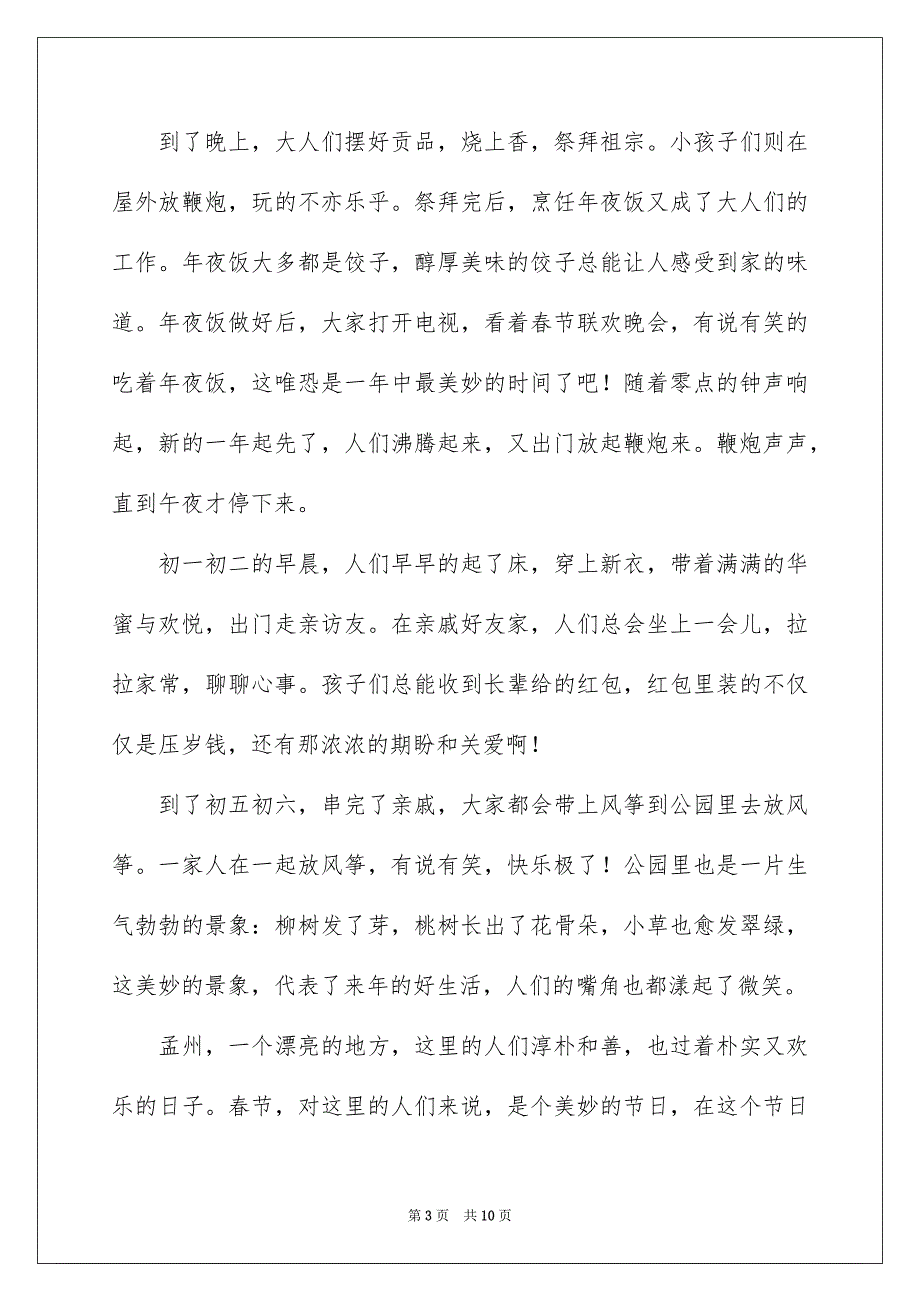 到了晚上，大人们摆好贡品，烧上香，祭拜祖宗。小孩子们则在
屋外放鞭炮，玩的不亦乐乎。祭拜完后，烹饪年夜饭又成了大人们的
工作。年夜饭大多都是饺子，醇厚美味的饺子总能让人感受到家的味
道。年夜饭做好后，大家打开电视，看着春节联欢晚会，有说有笑的
吃着年夜饭，这唯恐是一年中最美妙的时间了吧！随着零点的钟声响
起，新的一年起先了，人们沸腾起来，又出门放起鞭炮来。鞭炮声声，
直到午夜才停下来。
初一初二的早晨，人们早早的起了床，穿上新衣，带着满满的华
蜜与欢悦，出门走亲访友。在亲戚好友家，人们总会坐上一会儿，拉
拉家常，聊聊心事。孩子们总能收到长辈给的红包，红包里装的不仅
仅是压岁钱，还有那浓浓的期盼和关爱啊！
到了初五初六，串完了亲戚，大家都会带上风筝到公园里去放风
筝。一家人在一起放风筝，有说有笑，快乐极了！公园里也是一片生
气勃勃的景象：柳树发了芽，桃树长出了花骨朵，小草也愈发翠绿，
这美妙的景象，代表了来年的好生活，人们的嘴角也都漾起了微笑。
孟州，一个漂亮的地方，这里的人们淳朴和善，也过着朴实又欢
乐的日子。春节，对这里的人们来说，是个美妙的节日，在这个节日
第 3 页 共 10 页